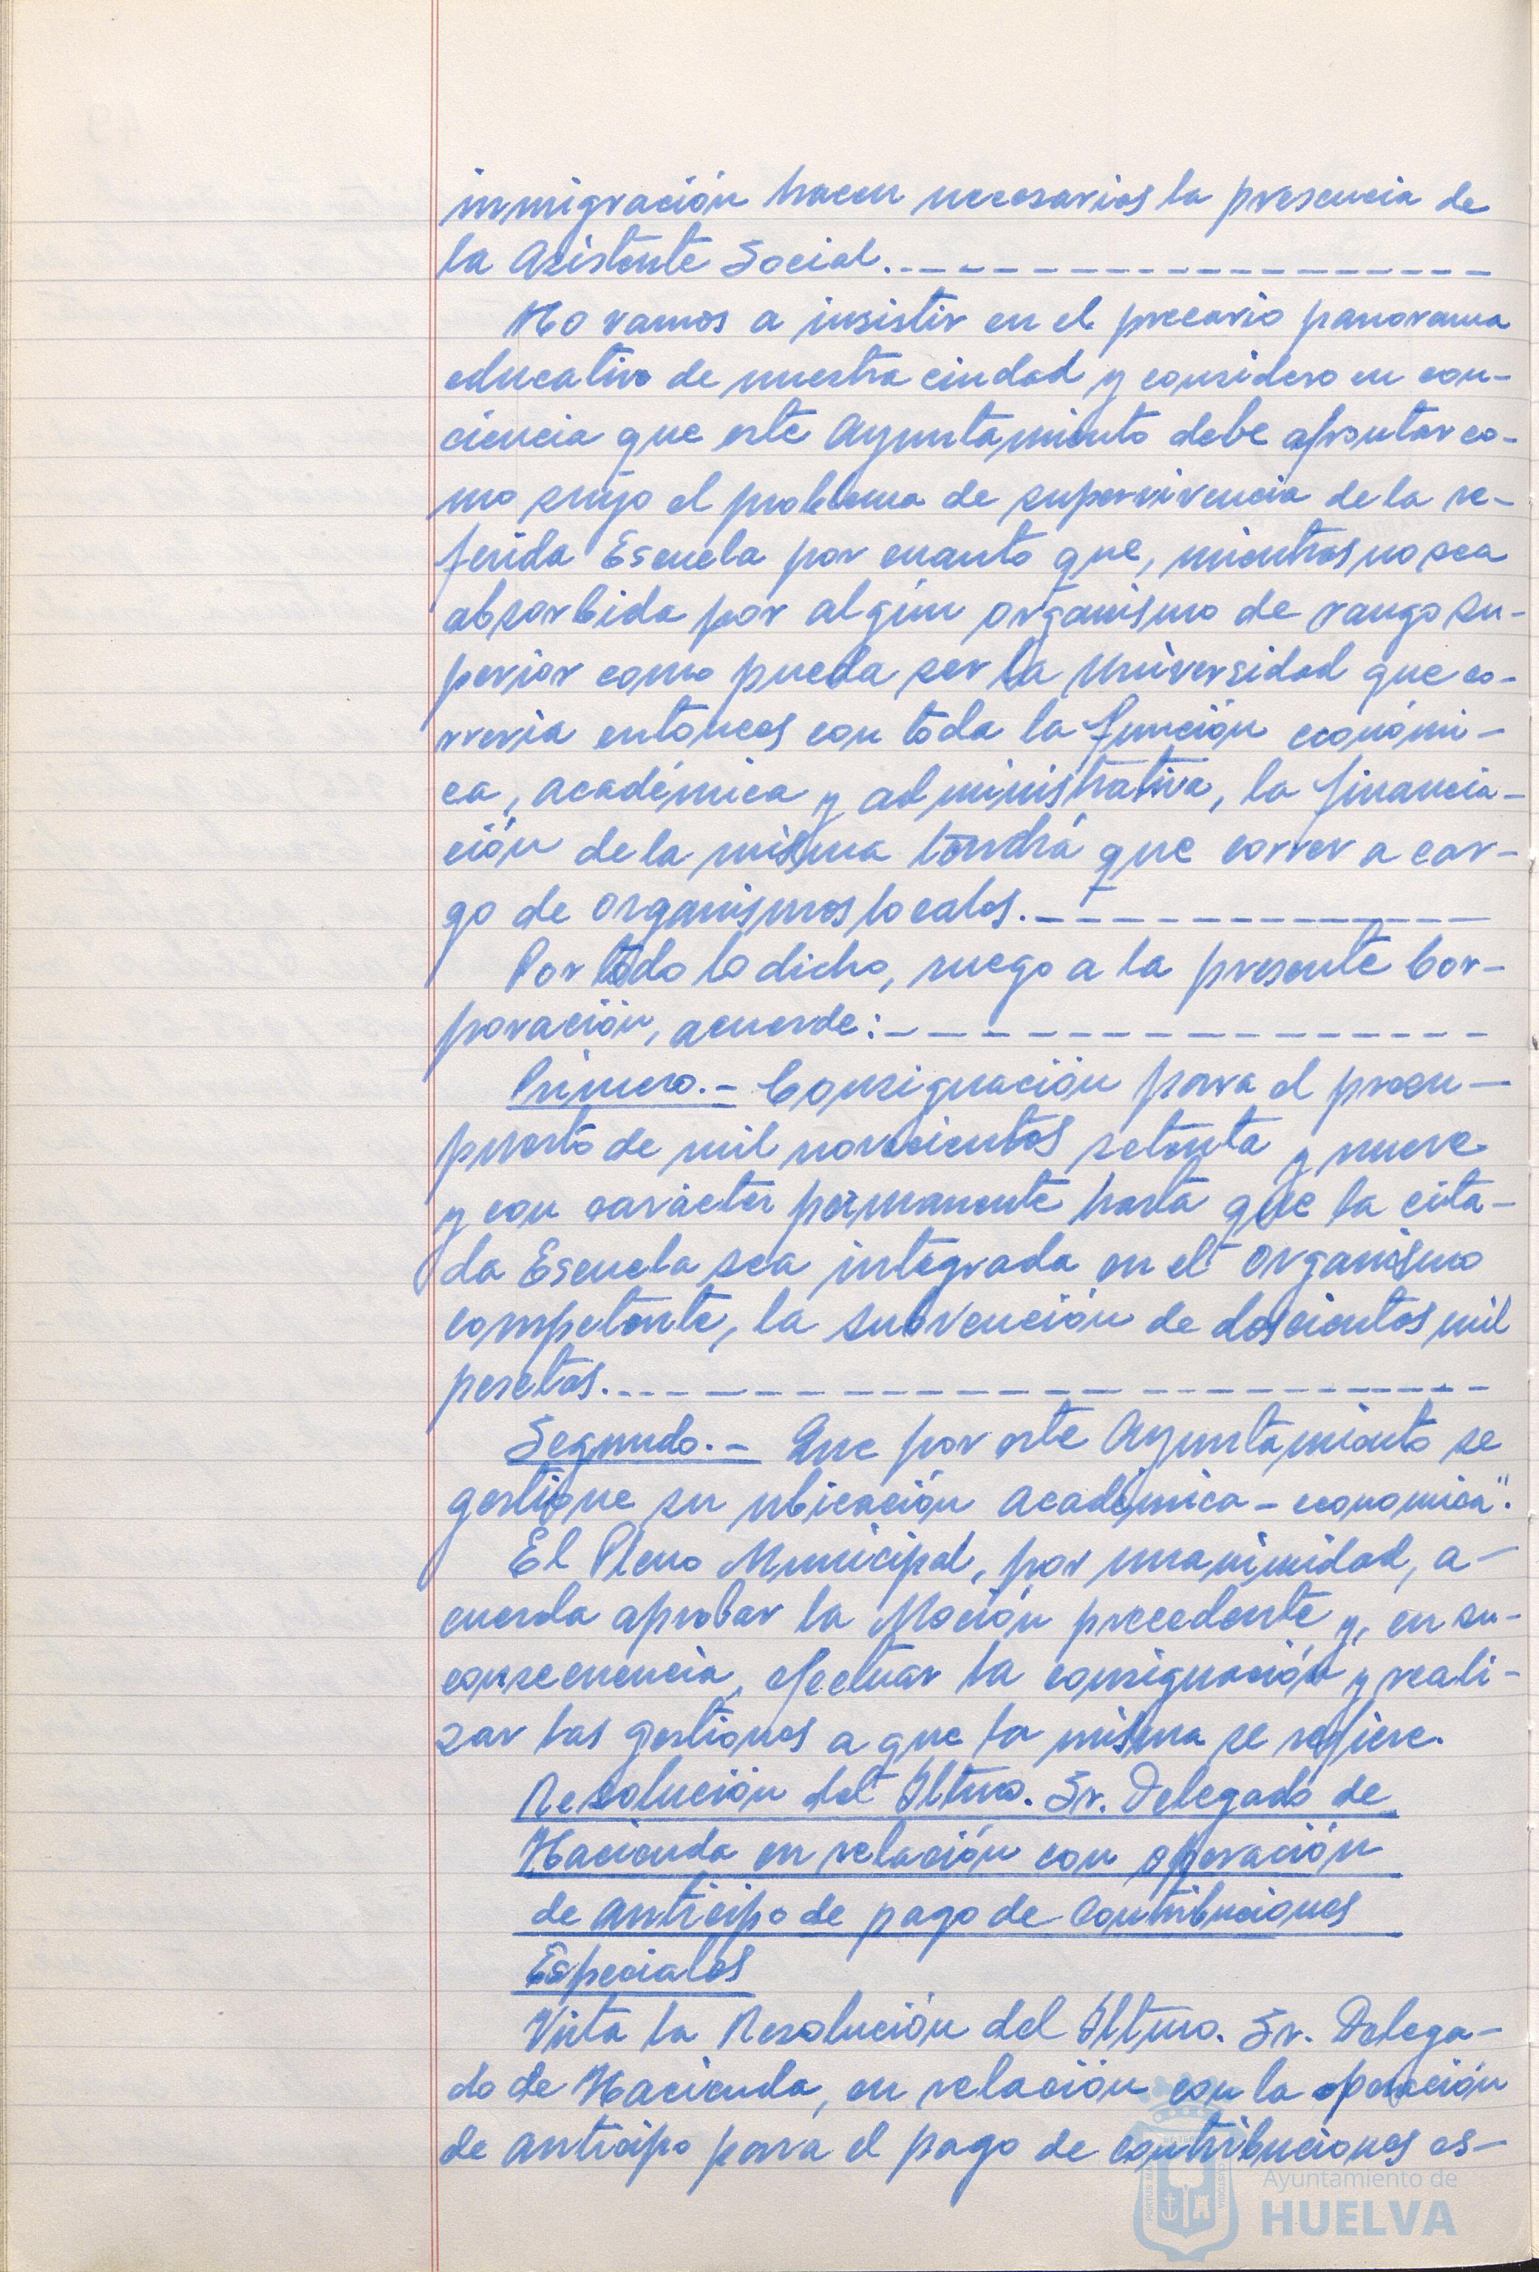 inmigración hacen necesarios la presencia de
la Asistente Social.
No vamos a insistir en el precario panorama
educativo de nuestra ciudad y considero en con-
ciencia que este Ayuntamiento debe afrontar co-
mo suyo el problema de supervivencia de la re-
ferida Escuela por cuanto que, mientras no sea
absorbida por algún organismo de rango su-
perior como pueda ser la Universidad que co-
rreria entonces con toda la función económi-
ca, académica y administrativa, la financia-
ción de la misma tendrá que correr a car-
go de organismos locales.
Por todo lo dicho, ruego a la presente Cor-
poración, acuerde:
Primero.- Consignación para el presu-
puesto de mil novecientos setenta y nueve
y con carácter permanente hasta que la cita-
da Escuela sea integrada en el organismo
competente, la subvención de doscientos mil
pesetas.
Segundo.- Que por este Ayuntamiento se
gestione su ubicación académica-economica".
El Pleno Municipal, por unanimidad, a-
cuerda aprobar la Moción precedente y, en su
consecuencia, efectuar la consignación y reali-
zar las gestiones a que la misma se refiere.
Resolución del Iltmo. Sr. Delegado de
Hacienda en relación con operación
de anticipo de pago de Contribuciones
Especiales
Vista la Resolución del Iltmo. Sr. Delega-
do de Hacienda, en relación con la operación
de anticipo para el pago de contribuciones es-
Ayuntamiento de
HUELVA